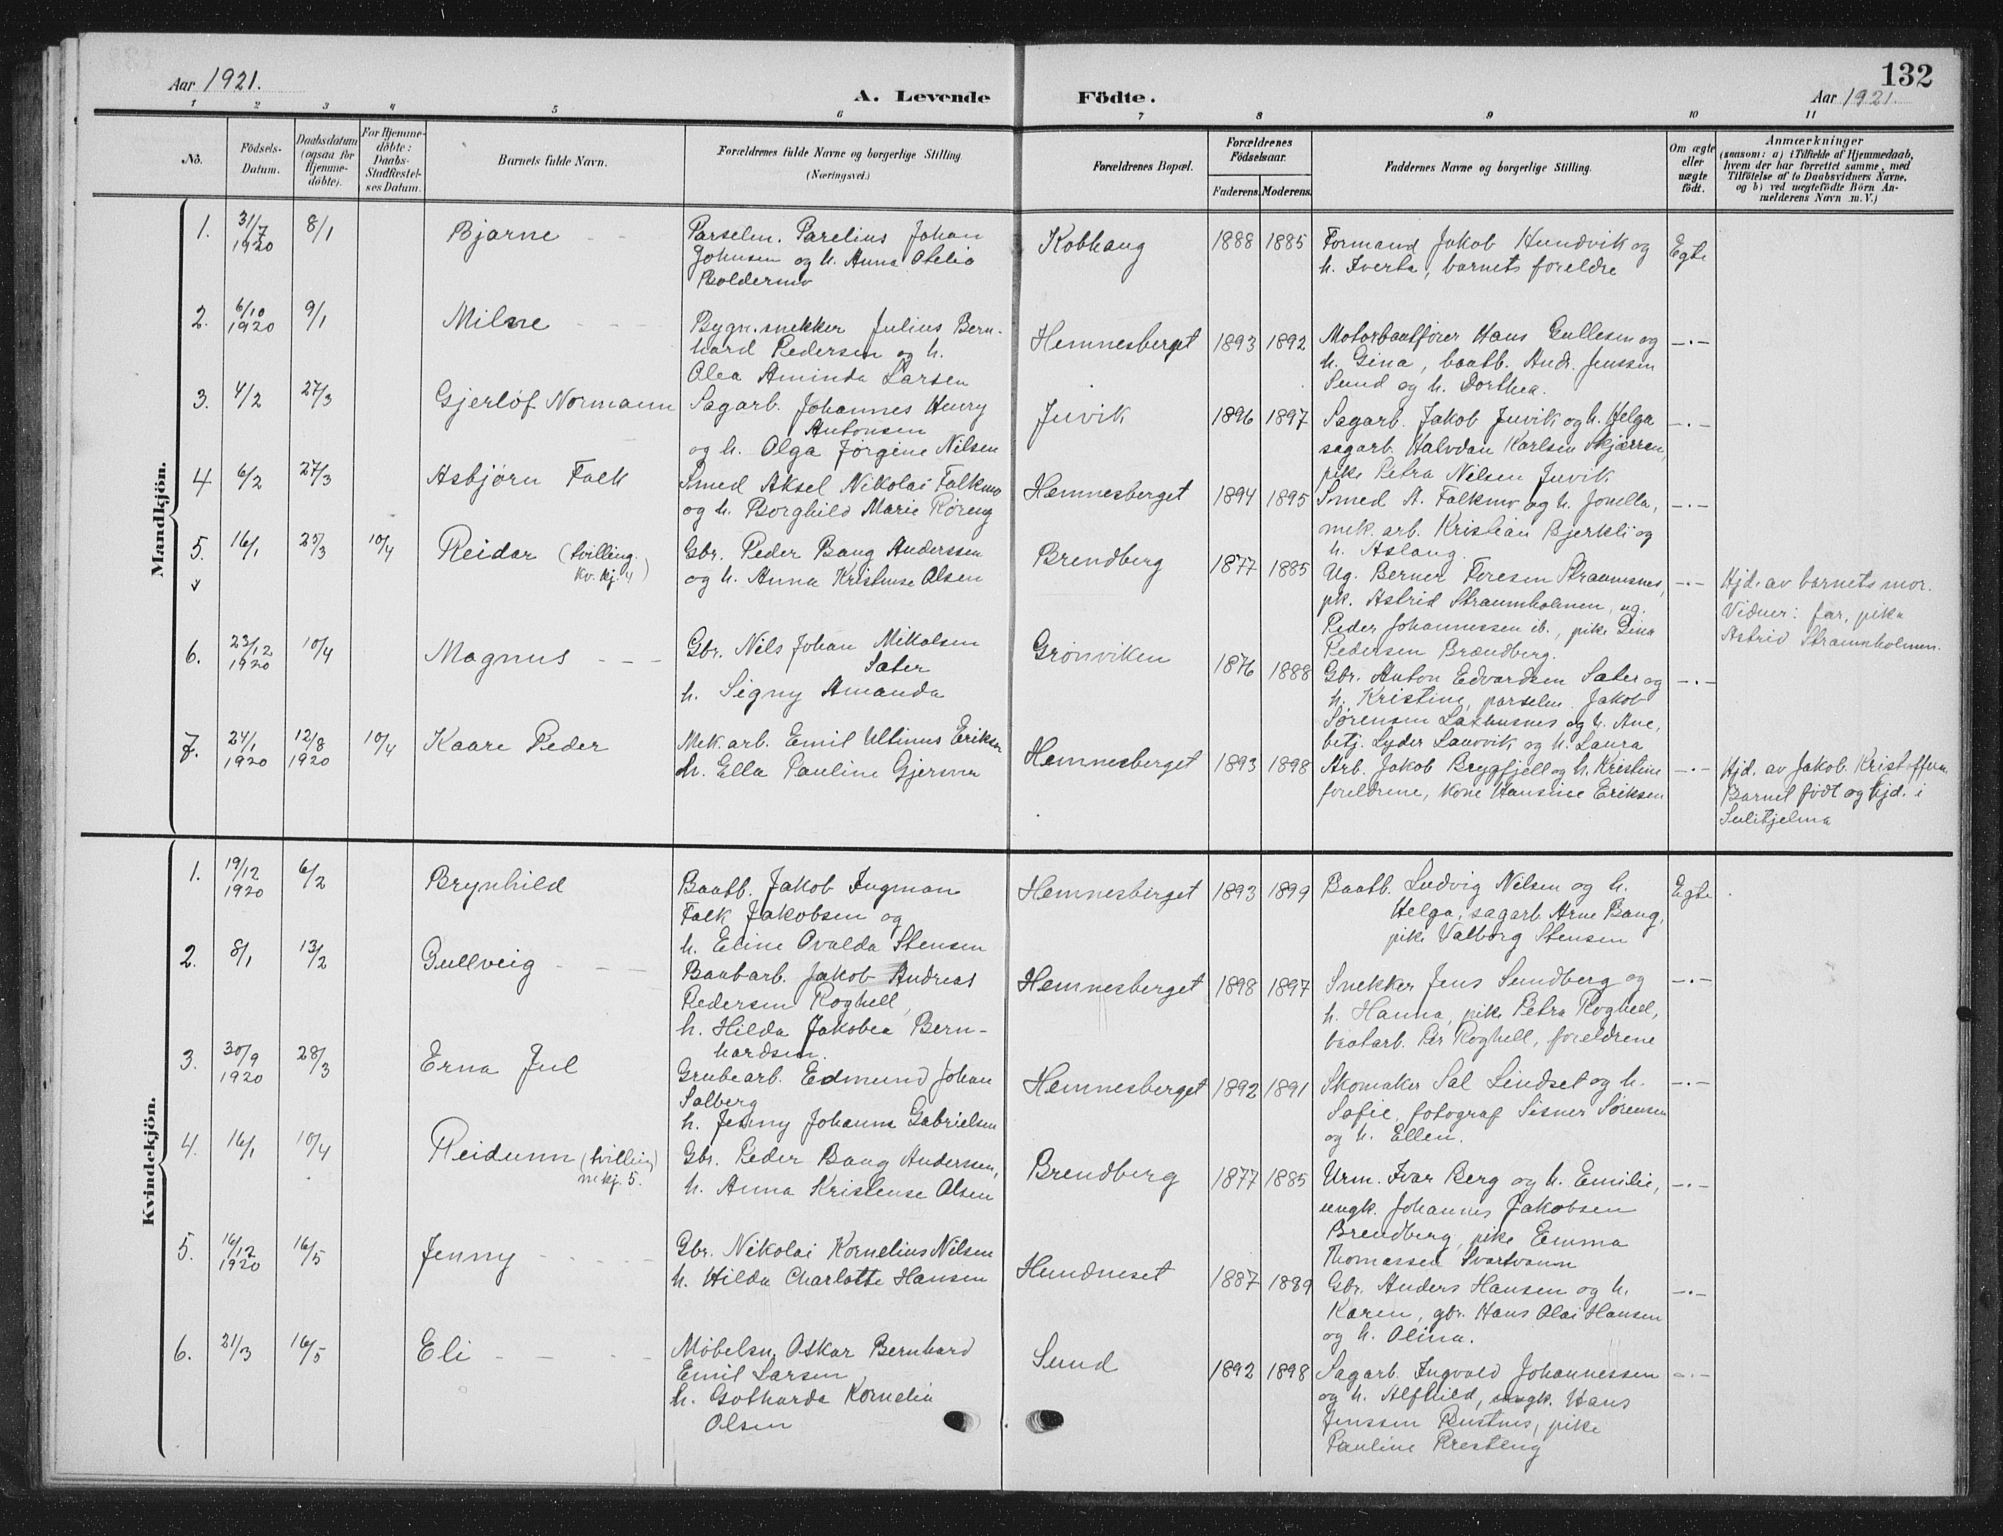 132
Aar 1921.
A. Levende Födte.
Aar 1921
1 2 3 4 5 6 7 8 9 10 11
No.
Födsels-
Datum.
Daabsdatum
(ogsaa for
Hjemme-
döbte).
For Hjemme-
döbte:
Daabs-
Stadfæstel-
ses Datum.
Barnets fulde Navn.
Forældrenes fulde Navne og borgerlige Stilling
(Næringsvei.)
Forældrenes Bopæl.
Forældrenes
Födselsaar.
Faderens. Moderens.
Faddernes Navne og borgerlige Stilling.
Om ægte
eller
uægte
födt.
Anmærkninger
(saasom: a) i Tilfælde af Hjemmedaab,
hvem der har forrettet samme, med
Tilföielse af to Daabsvidners Navne,
og b) ved uægtefödte Börn An-
melderens Navn m. V.)
Mandkjön.
1. 31/7 1920 8/1 Bjarne
Parselm. Parelius Johan
Johnsen og h. Anna Otelia
Boldermo
Kobhaug 1888 1885
Formand Jakob Hundvik og
h. Iverta, barnets foreldre
Egte
2. 6/10 1920 9/1 Milne
Bygn. snekker Julius Bern-
hard Pedersen og h.
Olea Aminda Larsen
Hemnesberget 1893 1892
Motorbaatfører Hans Gullesen og
h. Gina, baatb. Andr. Jenssen
Sund og h. Dorthea.
-.-
3. 4/2 27/3 Gjerløf Normann
Sagarb. Johannes Henry
Antonsen
og h. Olga Jørgine Nilsen
Juvik 1896 1897
Sagarb. Jakob Juvik og h. Helga
sagarb. Halvdan Karlsen Skjærran,
pike Petra Nilsen Juvik
-.-
4 6/2 27/3 Asbjørn Falk
Smed Aksel Nikolai Falkmo
og h. Borghild Marie Røreng
Hemnesberget 1894 1895
Smed A. Falkmo og h. Jonella,
mek. arb. Kristian Bjerkli og
h. Aslaug.
-.-
5. 16/1 25/3 10/4 Reidar (tvilling
kv. kj. 4)
Gbr. Peder Bang Anderssen
og h. Anna Kristense Olsen
Brendberg 1877 1885
Ug. Berner Foresen Straumsnes,
pk. Astrid Straumholmen, ug.
Peder Johannessen ib., pike Dina
Pedersen Brændberg.
-.-
Hjd. av barnets mor.
Vidner: far, pike
Astrid Straumholmen.
6. 23/12 1920 10/4 Magnus
Gbr. Nils Johan Mikalsen
Sæter
h. Signy Amanda
Grønviken 1876 1888
Gbr. Anton Edvardsen Sæter og
h. Kristine, parselm. Jakob
Sørensen Laxhusnes og h. Ane,
betj. Lyder Lanvik og h. Laura
-.-
7. 24/1 1920 12/8 1920 10/4 Kaare Peder
Mek. arb. Emil Ultinus Eriksen
h. Ella Pauline Gjermæ
Hemnesberget 1893 1898
Arb. Jakob Brygfjell og h. Kristine
foreldrene, kone Hansine Eriksen
-.-
Hjd. av Jakob Kristoffersen
Barnet født og hjd. i
Sulitjelma
Kvindekjön.
1. 19/12 1920 6/2 Brynhild
Baatb. Jakob Ingman
Falk Jakobsen og
h. Eline Ovalda Stensen
Hemnesberget 1893 1899
Baatb. Ludvig Nilsen og h.
Helga, sagarb. Arne Bang,
pike Valborg Stensen
Egte
2. 8/1 13/2 Gullveig
Baatarb. Jakob Andreas
Pedersen Roghell,
h. Hilda Jakobea Bern-
hardsen.
Hemnesberget 1898 1897
Snekker Jens Sundberg og
h. Hanna, pike Petra Roghell,
baatarb. Per Roghell, foreldrene
-.-
3. 30/9 1920 28/3 Erna Jul
Grubearb. Edmund Johan
Salberg
h. Jenny Johanna Gabrielsen
Hemnesberget 1892 1891
Skomaker Sal Lindset og h.
Sofie, fotograf Sisner Sørensen
og h. Ellen.
-.-
4. 16/1 10/4 Reidunn (tvilling
m. kj. 5.
Gbr. Peder Bang Anderssen,
h. Anna Kristense Olsen
Brendberg 1877 1885
Urm. Ivar Berg og h. Emilie,
ungk. Johannes Jakobsen
Brendberg, pike Emma
Thomassen Svartvann
-.-
5. 16/12 1920 16/5 Jenny
Gbr. Nikolai Kornelius Nilsen
h. Hilda Charlotte Hansen
Hundneset 1887 1889
Gbr. Anders Hansen og h.
Karen, gbr. Hans Olai Hansen
og h. Olina.
-.-
6. 21/3 16/5 Eli
Møbelsn. Oskar Bernhard
Emil Larsen
h. Gotharda Kornelia
Olsen
Sund 1892 1898
Sagarb. Ingvald Johannessen
og h. Alfhild, ungk. Hans
Jenssen Bustnes, pike
Pauline Presteng
-.-